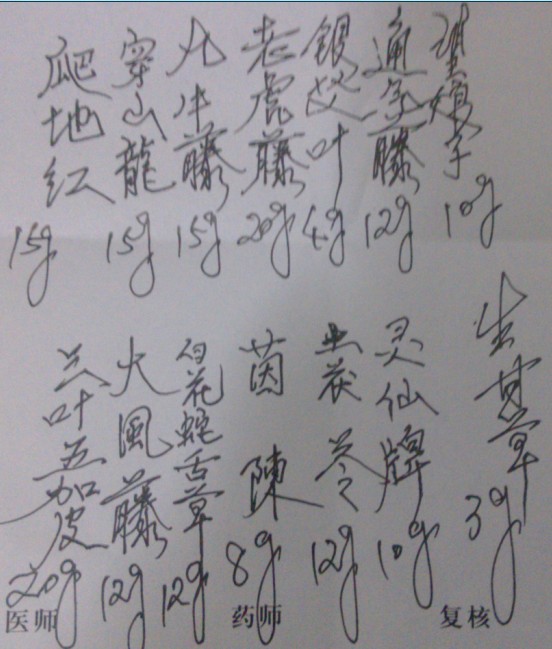 爬地红 15g
穿山龍 15g
九牛藤 15g
老虎藤 20g
银杏叶 4g
藤 12g
10g
三叶五加皮 20g
大風藤 12g
白花蛇舌草 12g
茵陳 8g
土茯苓 12g
灵仙牌 10g
生甘草 3g
医师 药师 复核